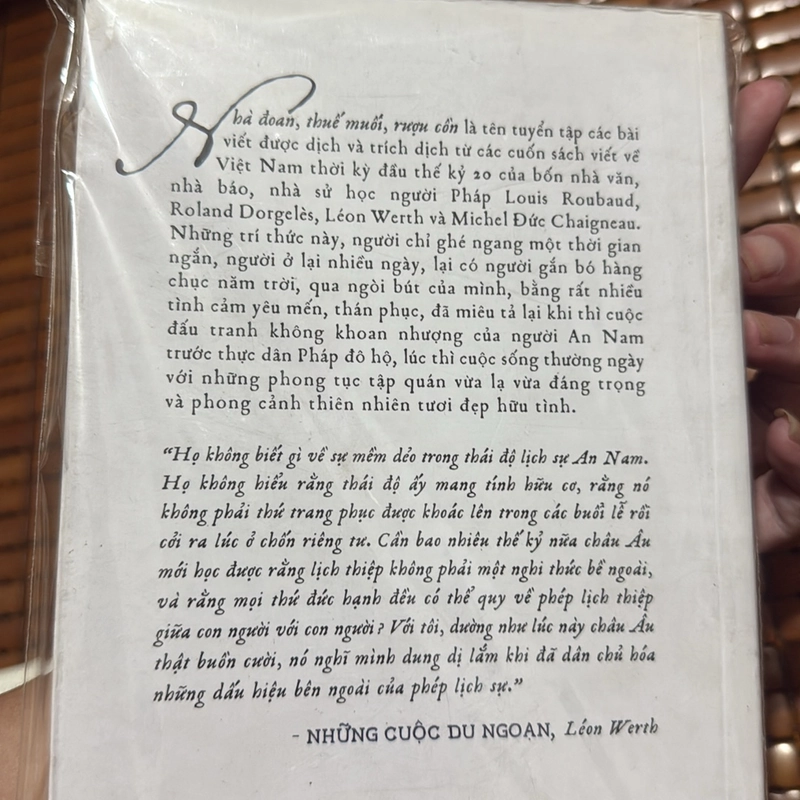 Nhà đoán, thuế muối, rượu cồn là tên tuyển tập các bài
viết được dịch và trích dịch từ các cuốn sách viết về
Việt Nam thời kỳ đầu thế kỷ 20 của bốn nhà văn,
nhà báo, nhà sử học người Pháp Louis Roubaud,
Roland Dorgelès, Léon Werth và Michel Đức Chaigneau.
Những trí thức này, người chỉ ghé ngang một thời gian
ngắn, người ở lại nhiều ngày, lại có người gắn bó hàng
chục năm trời, qua ngòi bút của mình, bằng rất nhiều
tình cảm yêu mến, thán phục, đã miêu tả lại khi thì cuộc
đấu tranh không khoan nhượng của người An Nam
trước thực dân Pháp đô hộ, lúc thì cuộc sống thường ngày
với những phong tục tập quán vừa lạ vừa đáng trọng
và phong cảnh thiên nhiên tươi đẹp hữu tình.
“Họ không biết gì về sự mềm dẻo trong thái độ lịch sự An Nam.
Họ không hiểu rằng thái độ ấy mang tính hữu cơ, rằng nó
không phải thứ trang phục được khoác lên trong các buổi lễ rồi
cởi ra lúc ở chốn riêng tư. Cần bao nhiêu thế kỷ nữa châu Âu
mới học được rằng lịch thiệp không phải một nghi thức bề ngoài,
và rằng mọi thứ đức hạnh đều có thể quy về phép lịch thiệp
giữa con người với con người? Với tôi, dường như lúc này châu Âu
thật buồn cười, nó nghĩ mình dung dị lắm khi đã dân chủ hóa
những dấu hiệu bên ngoài của phép lịch sự.”
- NHỮNG CUỘC DU NGOẠN, Léon Werth